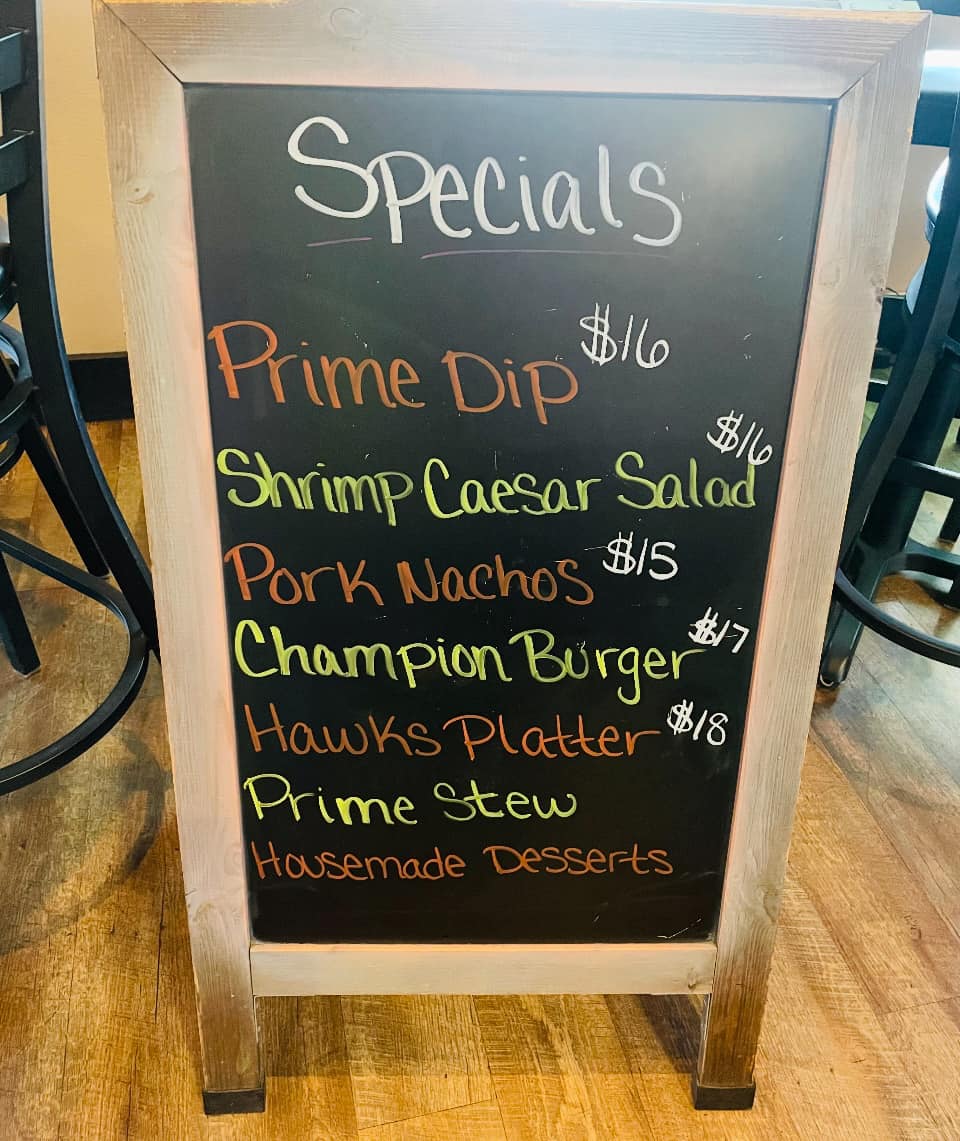 Specials
Prime Dip $16
Shrimp Caesar Salad $16
Pork Nachos $15
Champion Burger $17
Hawks Platter $18
Prime Stew
Housemade Desserts